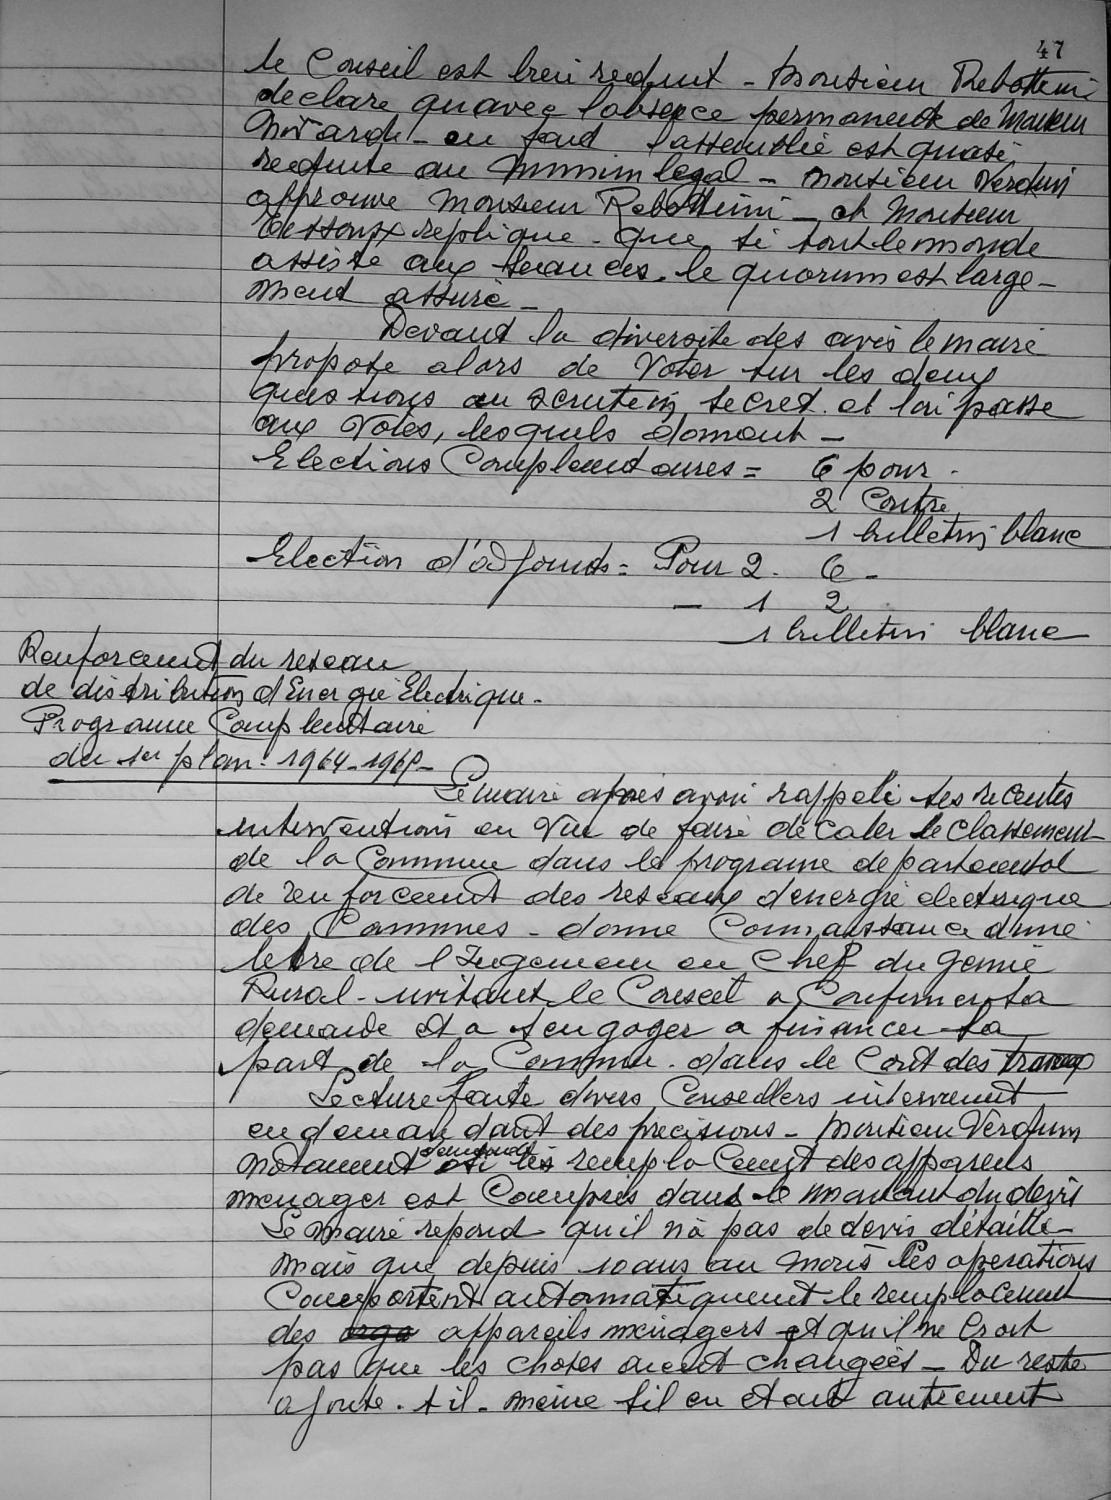 47
le Conseil est bien reduit - Monsieur Rebottini
declare qu'avec l'absence permanente de Monsieur
en fait l'assemblée est quasi
reduite au minim legal - Monsieur Verdun
approuve Monsieur Rebottini - et Monsieur
Dessoux replique - que si tout le monde
assiste aux seances - le quorum est large-
ment assuré -
Devant la diversite des avis le maire
propose alors de voter sur les deux
questions au scrutein secret. et fai passe
aux votes, lesquels donnent -
Elections Complentaires = 6 pour -
2 Contre
1 bulletin blanc
Election d'adjoints = Pour 2 - 6 -
- 1 2
1 bulletin blanc
Renforcement du reseau
de distribution d'Energie Electrique -
Programe Complentaire
du 1er plan - 1964-1965-
Le maire après avoir rappelé ses recentes
interventions en vue de faire décaler le classement
de la Commune dans le programe departemental
de renforcement des reseaux d'energie electrique
des Communes - donne Connaissance d'une
lettre de l'Ingenieur en Chef du Genie
Rural - invitant le Conseil a Confirmer sa
demande et a s'engager a financer la
part de la Commune - dans le Cout des travaux
Lecture faite divers Conseillers interviennent
en demandant des precisions - Monsieur Verdun
notament demande si le remplacement des appareils
menager est Compris dans le montant du devis
Le Maire repond qu'il n'a pas de devis détaillé -
mais que depuis 10 ans au mois les operations
Comportent automatiquement le remplacement
des appareils ménagers et qu'il ne croit
pas que les choses aient changées - Du reste
ajoute-t-il - meme s'il en etait autrement